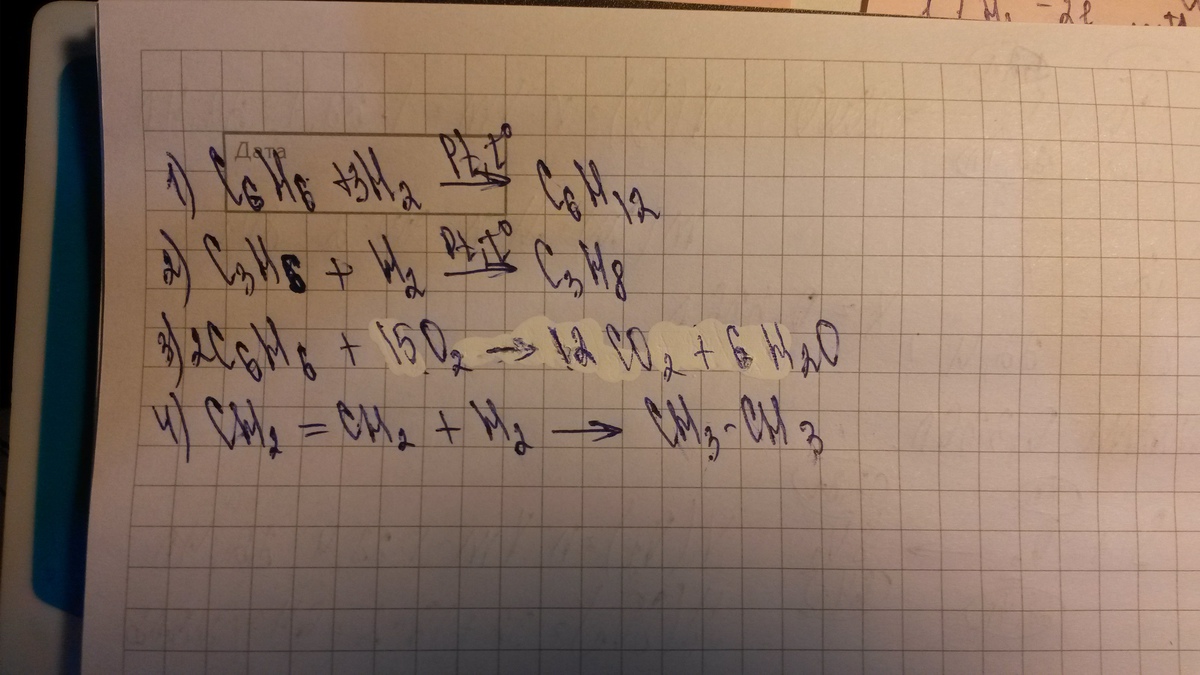 Дата
1) C₆H₆ + 3H₂ →(Pt, t°) C₆H₁₂
2) C₃H₆ + H₂ →(Pt, t°) C₃H₈
3) 2C₆H₆ + 15O₂ → 12CO₂ + 6H₂O
4) CH₂ = CH₂ + H₂ → CH₃-CH₃